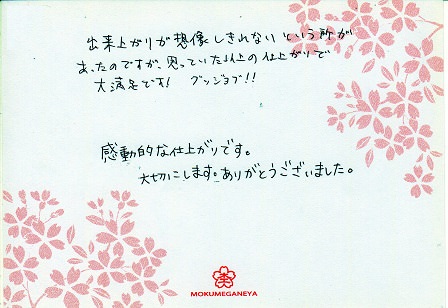 出来上がりが想像しきれないという所が
あったのですが、思っていた以上の仕上がりで
大満足です！ グッジョブ!!
感動的な仕上がりです。
大切にします。ありがとうございました。
MOKUMEGANEYA